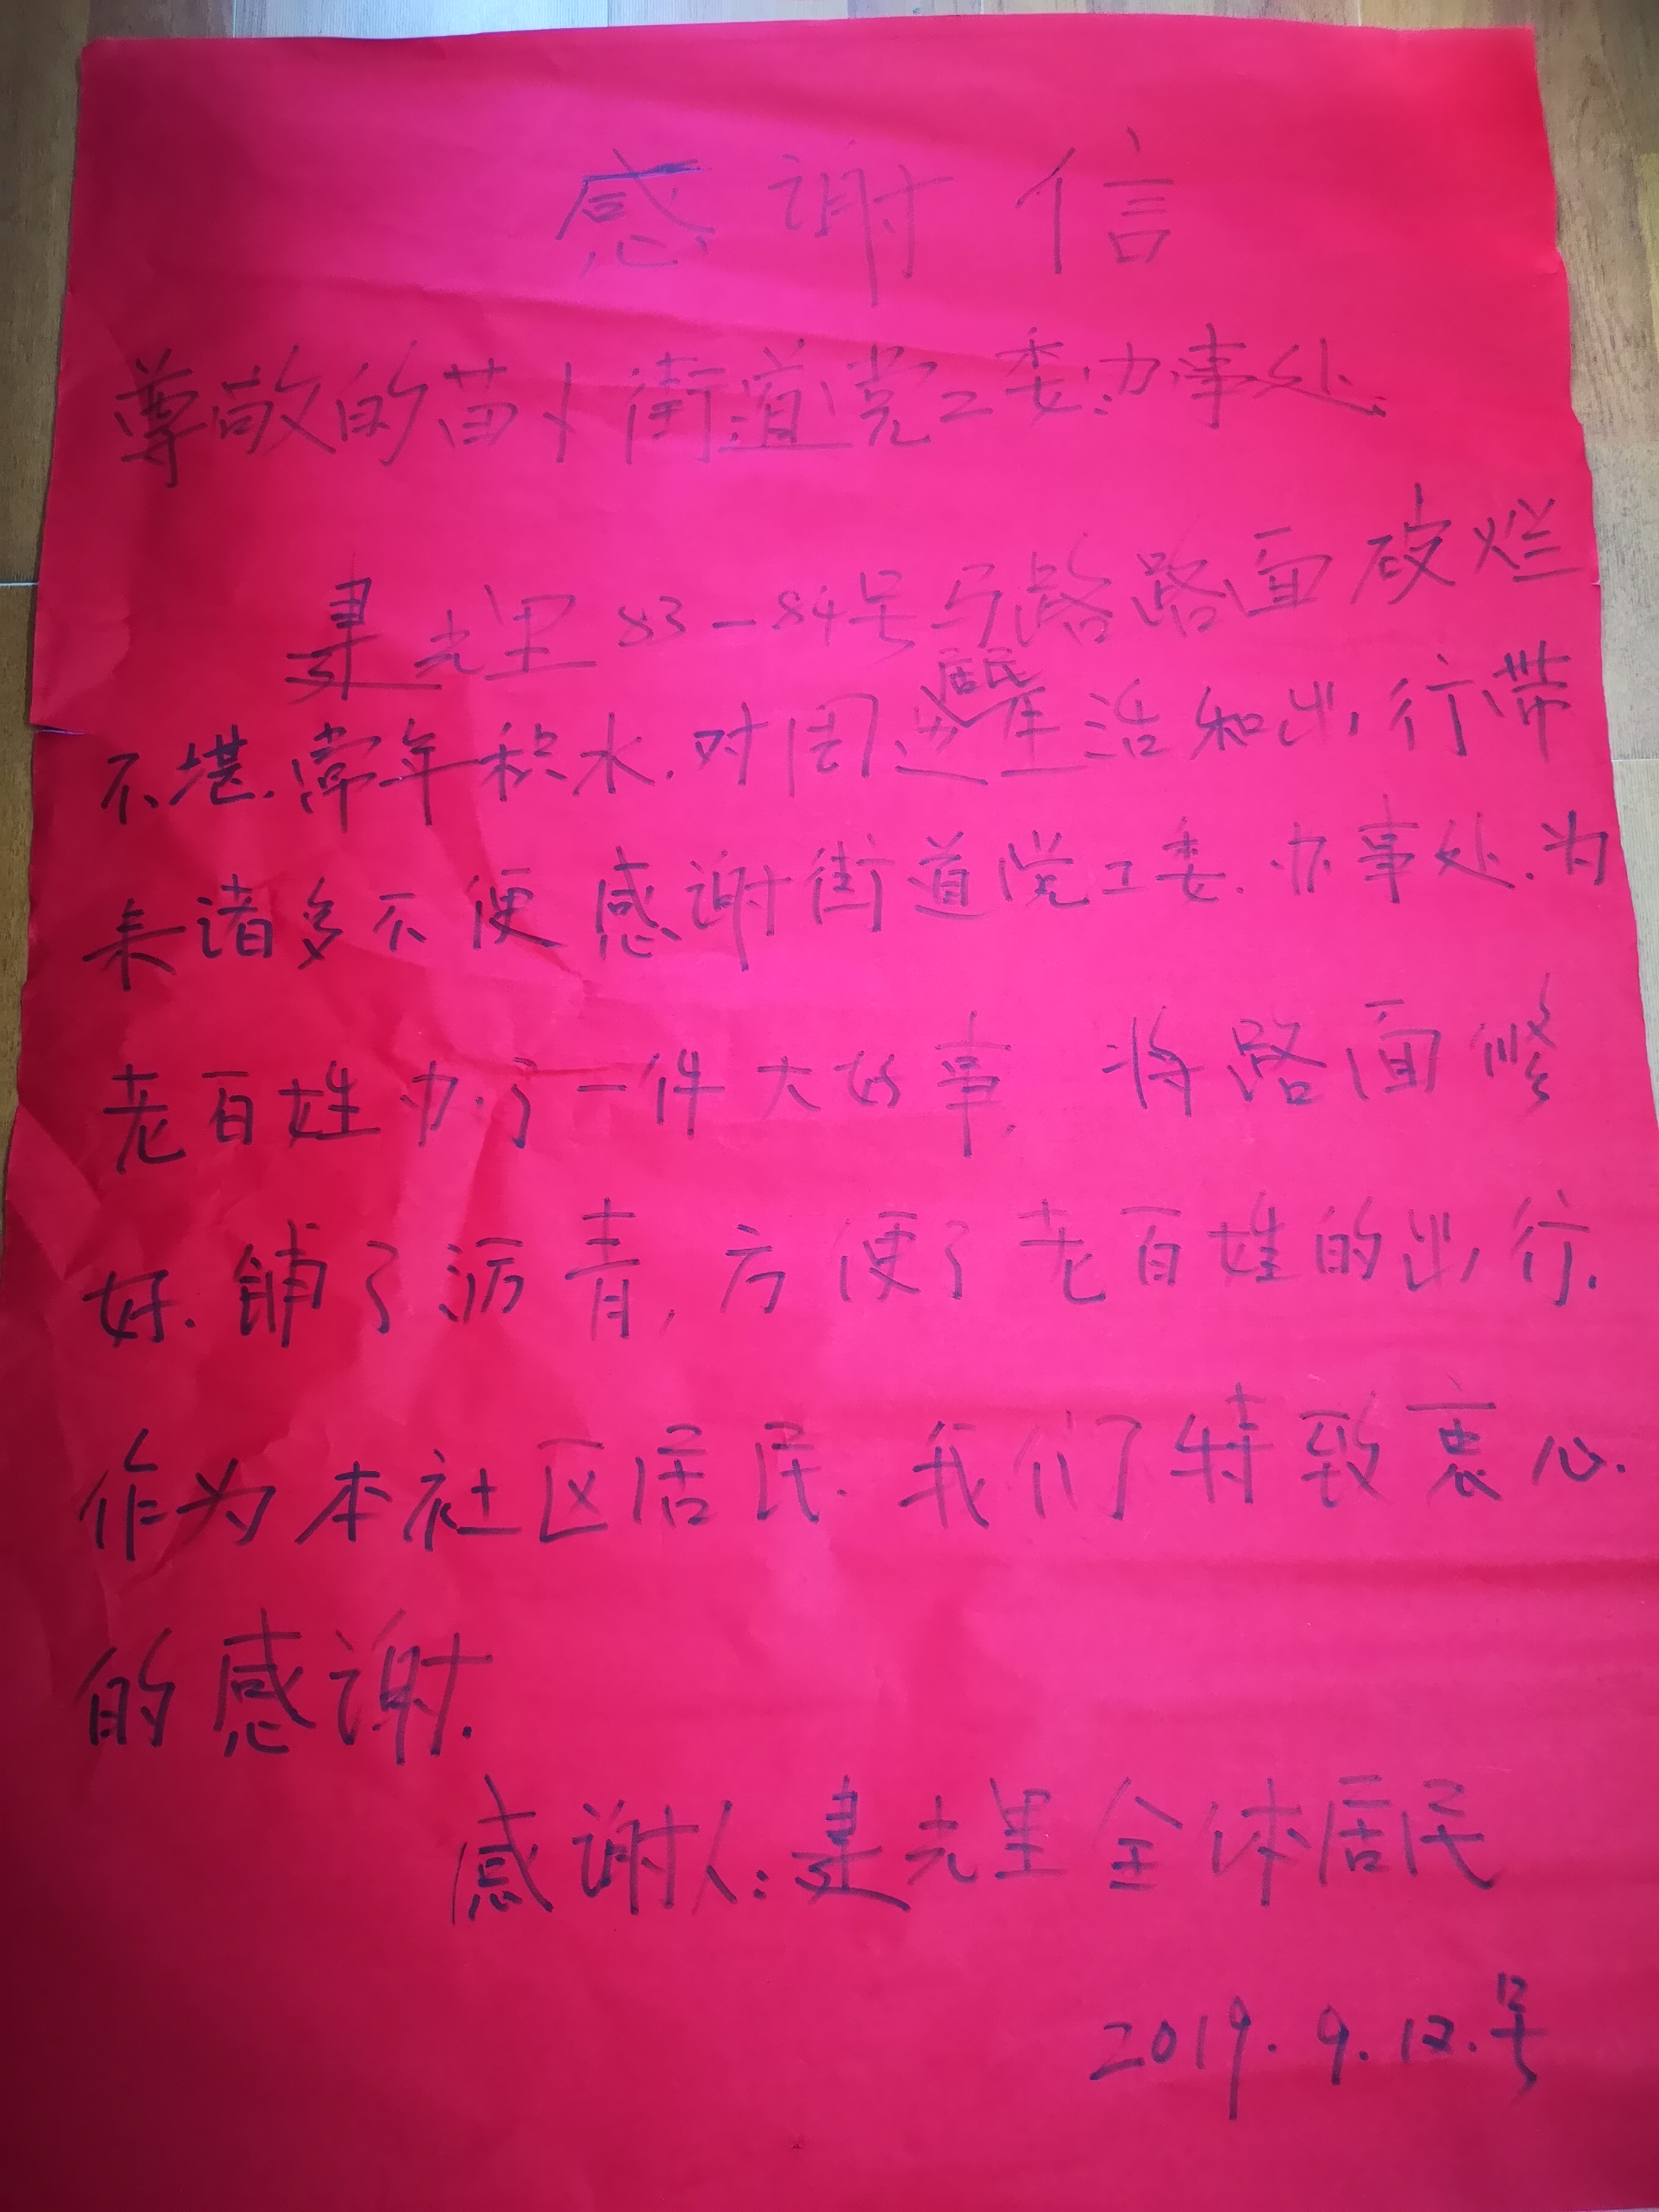 感谢信
尊敬的苗卜街道党工委办事处.
建光里83-84号马路路面破烂
不堪.常年积水.对周边居民生活和出行带
来诸多不便感谢街道党工委.办事处.为
老百姓办了一件大好事.将路面修
好.铺了沥青,方便了老百姓的出行.
作为本社区居民.我们特致衷心.
的感谢.
感谢人:建光里全体居民
2019.9.12.号